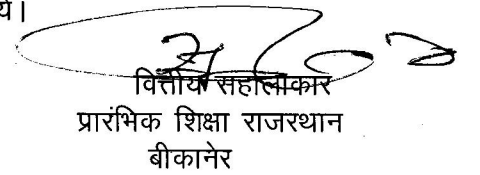 ये।
वित्तीय सहालाकार
प्रारंभिक शिक्षा राजरथान
बीकानेर